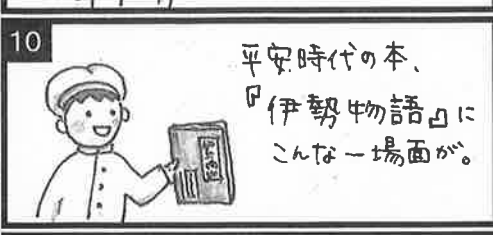 10
平安時代の本、
『伊勢物語』に
こんな一場面が。